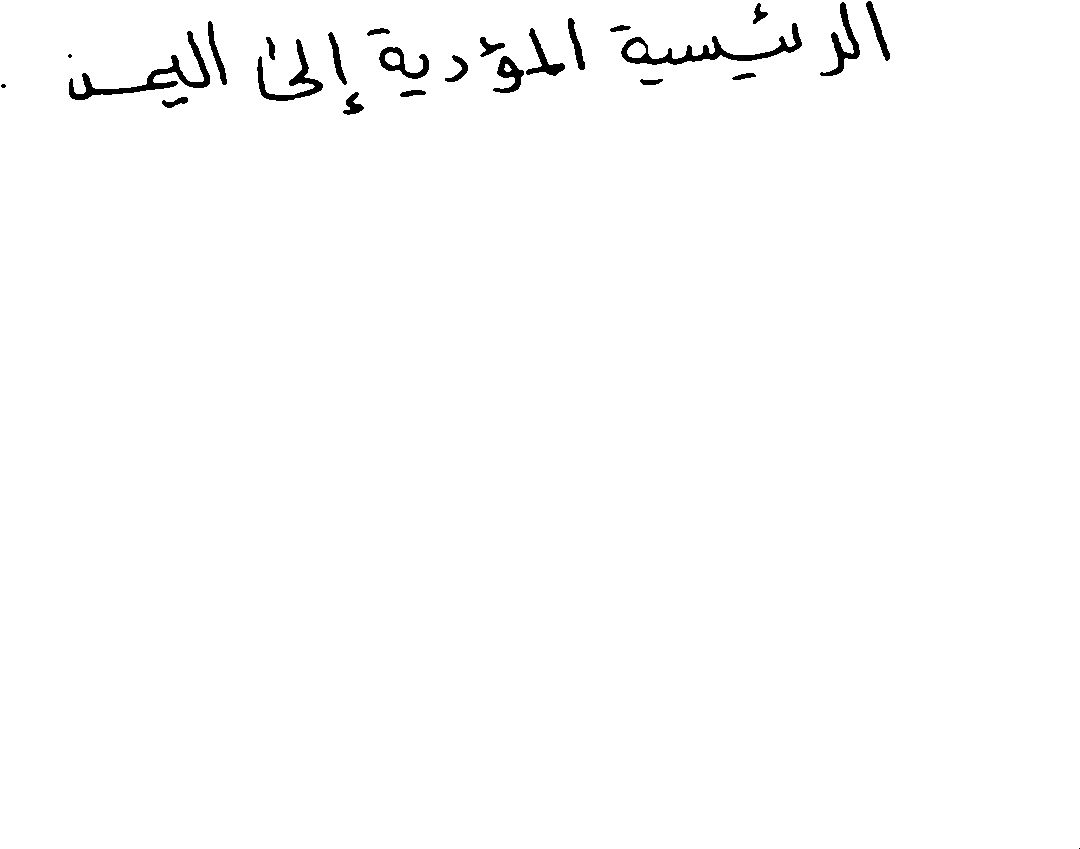 الرئيسية المؤدية إلى اليمن .